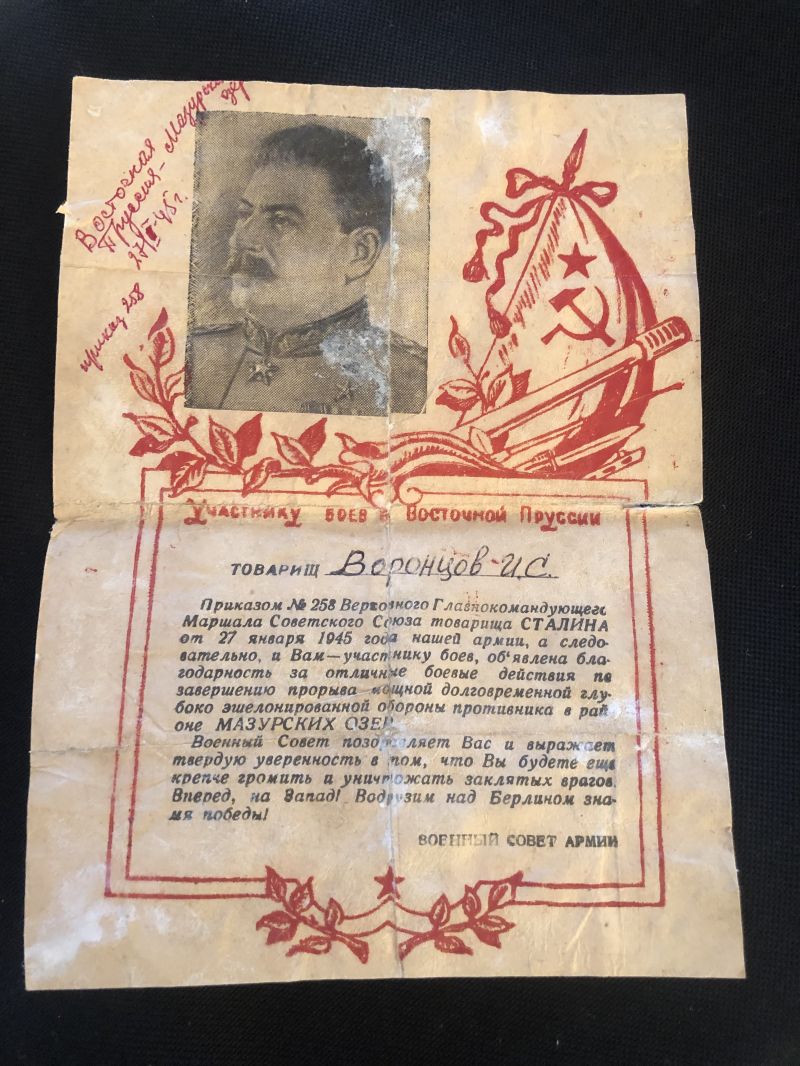 Восточная
Пруссия - Мазурские
27/I-45 г.
приказ 258
Участнику боев в Восточной Пруссии
товарищ Воронцов И.С.
Приказом № 258 Верховного Главнокомандующего
Маршала Советского Союза товарища СТАЛИНА
от 27 января 1945 года нашей армии, а следо-
вательно, и Вам—участнику боев, об'явлена бла-
годарность за отличные боевые действия по
завершению прорыва мощной долговременной глу-
боко эшелонированной обороны противника в рай
оне МАЗУРСКИХ ОЗЕР
Военный Совет поздравляет Вас и выражает
твердую уверенность в том, что Вы будете еще
крепче громить и уничтожать заклятых врагов.
Вперед, на Запад! Водрузим над Берлином зна-
мя победы!
ВОЕННЫЙ СОВЕТ АРМИИ